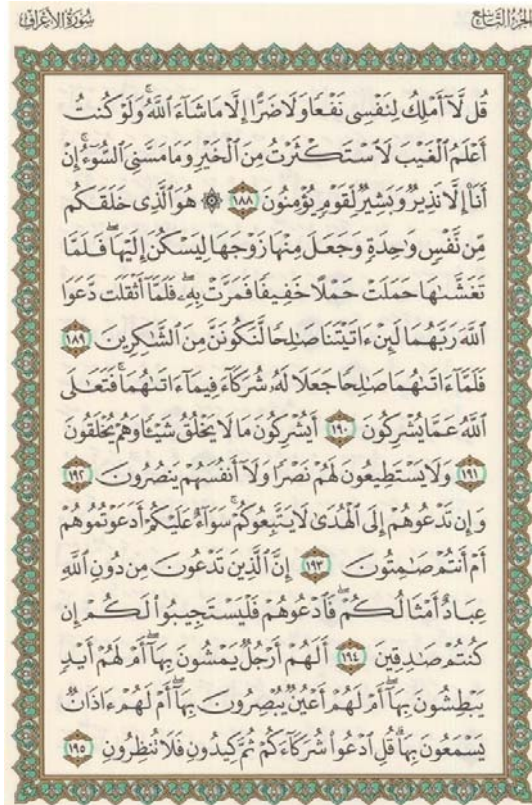 الجزء التاسع
سورة الأعراف
قُل لَّآ أَمْلِكُ لِنَفْسِى نَفْعًا وَلَا ضَرًّا إِلَّا مَا شَآءَ ٱللَّهُ ۚ وَلَوْ كُنتُ
أَعْلَمُ ٱلْغَيْبَ لَٱسْتَكْثَرْتُ مِنَ ٱلْخَيْرِ وَمَا مَسَّنِىَ ٱلسُّوٓءُ ۚ إِنْ
أَنَا۠ إِلَّا نَذِيرٌ وَبَشِيرٌ لِّقَوْمٍ يُؤْمِنُونَ ١٨٨ ۞ هُوَ ٱلَّذِى خَلَقَكُم
مِّن نَّفْسٍ وَٰحِدَةٍ وَجَعَلَ مِنْهَا زَوْجَهَا لِيَسْكُنَ إِلَيْهَا ۖ فَلَمَّا
تَغَشَّىٰهَا حَمَلَتْ حَمْلًا خَفِيفًا فَمَرَّتْ بِهِۦ ۖ فَلَمَّآ أَثْقَلَت دَّعَوَا
ٱللَّهَ رَبَّهُمَا لَئِنْ ءَاتَيْتَنَا صَٰلِحًا لَّنَكُونَنَّ مِنَ ٱلشَّٰكِرِينَ ١٨٩
فَلَمَّآ ءَاتَىٰهُمَا صَٰلِحًا جَعَلَا لَهُۥ شُرَكَآءَ فِيمَآ ءَاتَىٰهُمَا ۚ فَتَعَٰلَى
ٱللَّهُ عَمَّا يُشْرِكُونَ ١٩٠ أَيُشْرِكُونَ مَا لَا يَخْلُقُ شَيْـًٔا وَهُمْ يُخْلَقُونَ
١٩١ وَلَا يَسْتَطِيعُونَ لَهُمْ نَصْرًا وَلَآ أَنفُسَهُمْ يَنصُرُونَ ١٩٢
وَإِن تَدْعُوهُمْ إِلَى ٱلْهُدَىٰ لَا يَتَّبِعُوكُمْ ۚ سَوَآءٌ عَلَيْكُمْ أَدَعَوْتُمُوهُمْ
أَمْ أَنتُمْ صَٰمِتُونَ ١٩٣ إِنَّ ٱلَّذِينَ تَدْعُونَ مِن دُونِ ٱللَّهِ
عِبَادٌ أَمْثَالُكُمْ ۖ فَٱدْعُوهُمْ فَلْيَسْتَجِيبُوا۟ لَكُمْ إِن
كُنتُمْ صَٰدِقِينَ ١٩٤ أَلَهُمْ أَرْجُلٌ يَمْشُونَ بِهَآ ۖ أَمْ لَهُمْ أَيْدٍ
يَبْطِشُونَ بِهَآ ۖ أَمْ لَهُمْ أَعْيُنٌ يُبْصِرُونَ بِهَآ ۖ أَمْ لَهُمْ ءَاذَانٌ
يَسْمَعُونَ بِهَا ۗ قُلِ ٱدْعُوا۟ شُرَكَآءَكُمْ ثُمَّ كِيدُونِ فَلَا تُنظِرُونِ ١٩٥